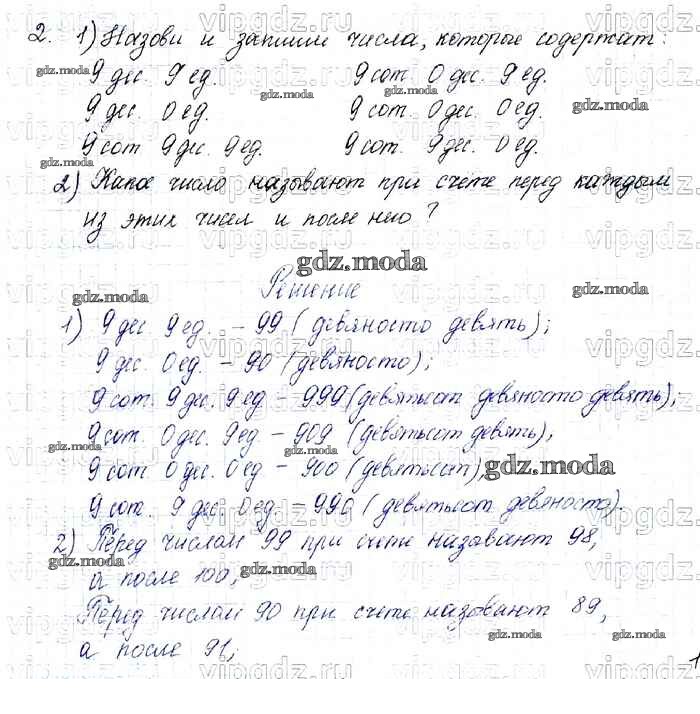 2. 1) Назови и запиши числа, которые содержат:
9 дес. 9 ед. 9 сот. 0 дес. 9 ед.
9 дес. 0 ед. 9 сот. 0 дес. 0 ед.
9 сот 9 дес. 9 ед. 9 сот. 9 дес. 0 ед.
2) Какое число называют при счете перед каждым
из этих чисел и после него?
gdz.moda
Решение
1) 9 дес 9 ед. - 99 (девяносто девять);
9 дес. 0 ед. - 90 (девяносто);
9 сот. 9 дес. 9 ед - 999 (девятьсот девяносто девять),
9 сот. 0 дес. 9 ед - 909 (девятьсот девять),
9 сот. 0 дес. 0 ед - 900 (девятьсот), gdz.moda
9 сот. 9 дес. 0 ед. - 990 (девятьсот девяносто).
2) Перед числом 99 при счете называют 98,
а после 100,
Перед числом 90 при счете называют 89,
а после 91;
1